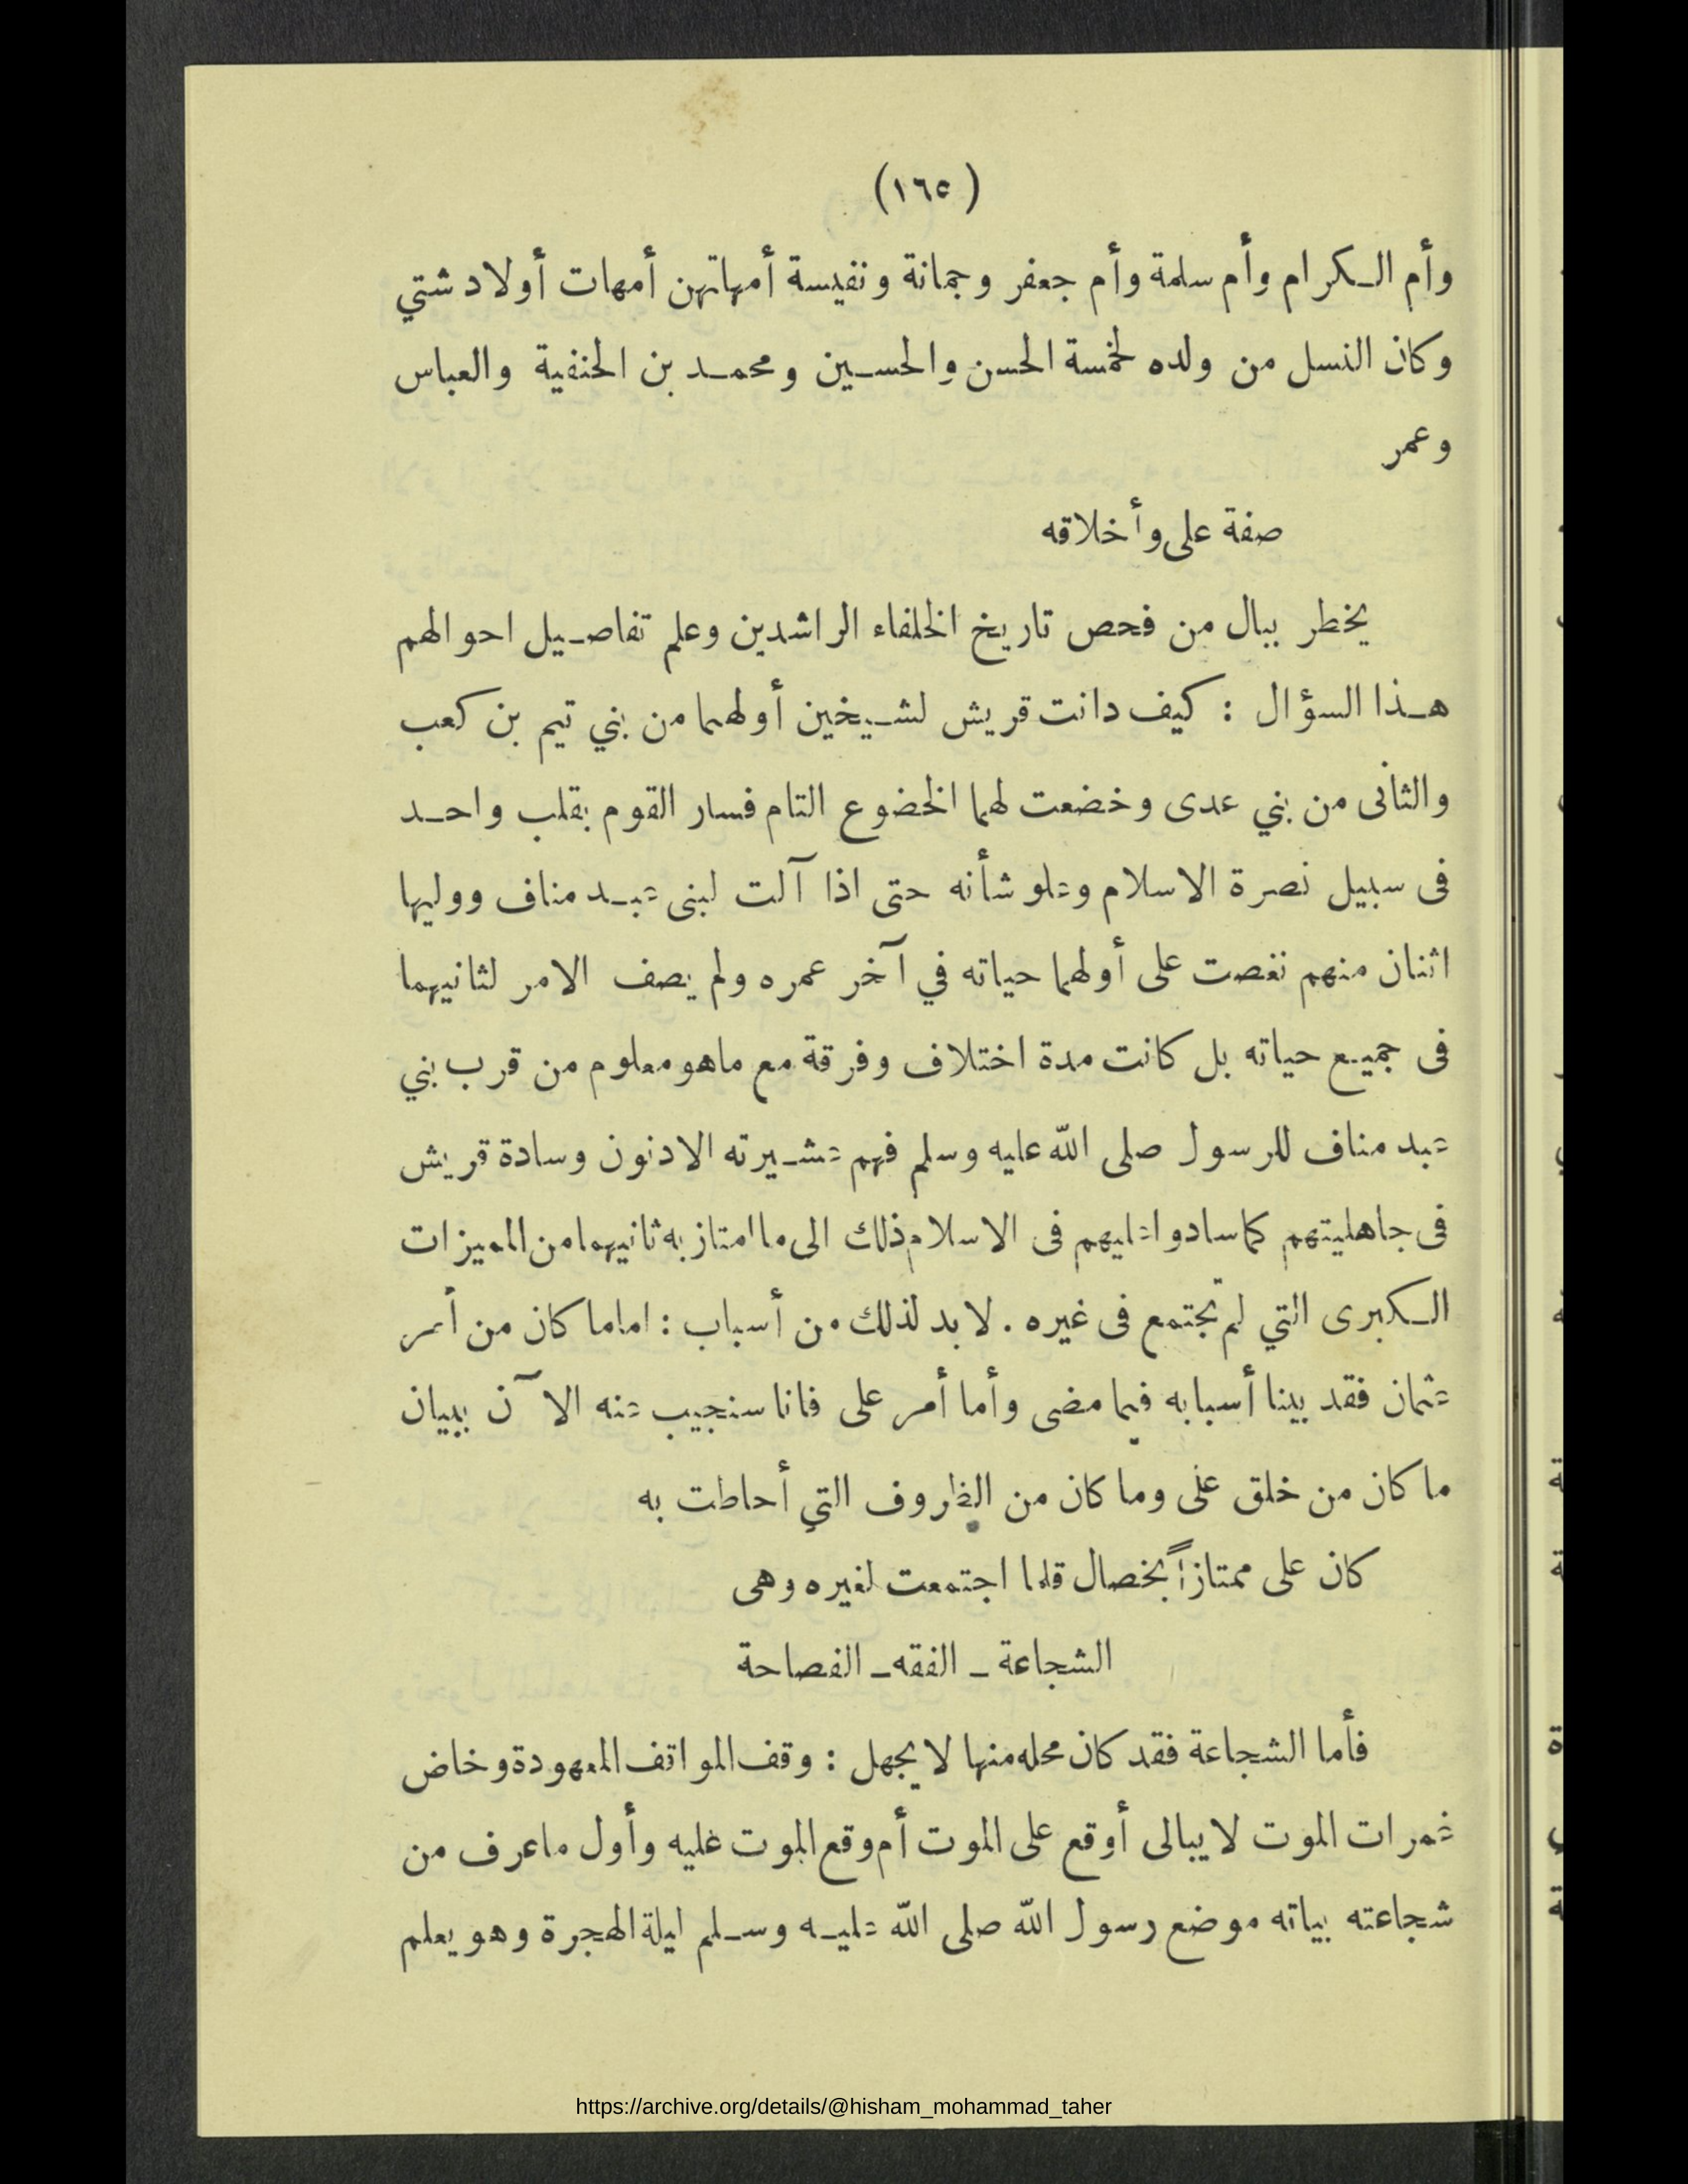 (١٦٥)
وأم الكرام وأم سلمة وأم جعفر وجمانة ونفيسة أمهاتهن أمهات أولاد شتي
وكان النسل من ولده لخمسة الحسن والحسين ومحمد بن الحنفية والعباس
وعمر
صفة على وأخلاقه
يخطر ببال من فحص تاريخ الخلفاء الراشدين وعلم تفاصيل احوالهم
هذا السؤال : كيف دانت قريش لشيخين أولهما من بني تيم بن كعب
والثانى من بني عدى وخضعت لهما الخضوع التام فسار القوم بقلب واحد
فى سبيل نصرة الاسلام وعلو شأنه حتى اذا آلت لبنى عبد مناف ووليها
اثنان منهم نغصت على أولهما حياته في آخر عمره ولم يصف الامر لثانيهما
فى جميع حياته بل كانت مدة اختلاف وفرقة مع ماهو معلوم من قرب بني
عبد مناف للرسول صلى الله عليه وسلم فهم عشيرته الادنون وسادة قريش
فى جاهليتهم كما سادوا عليهم فى الاسلام ذلك الى ما امتاز به ثانيهما من المميزات
الكبرى التي لم تجتمع فى غيره . لا بد لذلك من أسباب : اما ما كان من أمر
عثمان فقد بينا أسبابه فيما مضى وأما أمر على فانا سنجيب عنه الآن ببيان
ما كان من خلق على وما كان من الظروف التي أحاطت به
كان على ممتازاً بخصال قلما اجتمعت لغيره وهى
الشجاعة ـ الفقه ـ الفصاحة
فأما الشجاعة فقد كان محله منها لا يجهل : وقف المواقف المعهودة وخاض
غمرات الموت لا يبالى أوقع على الموت أم وقع الموت عليه وأول ما عرف من
شجاعته بياته موضع رسول الله صلى الله عليه وسلم ليلة الهجرة وهو يعلم
https://archive.org/details/@hisham_mohammad_taher